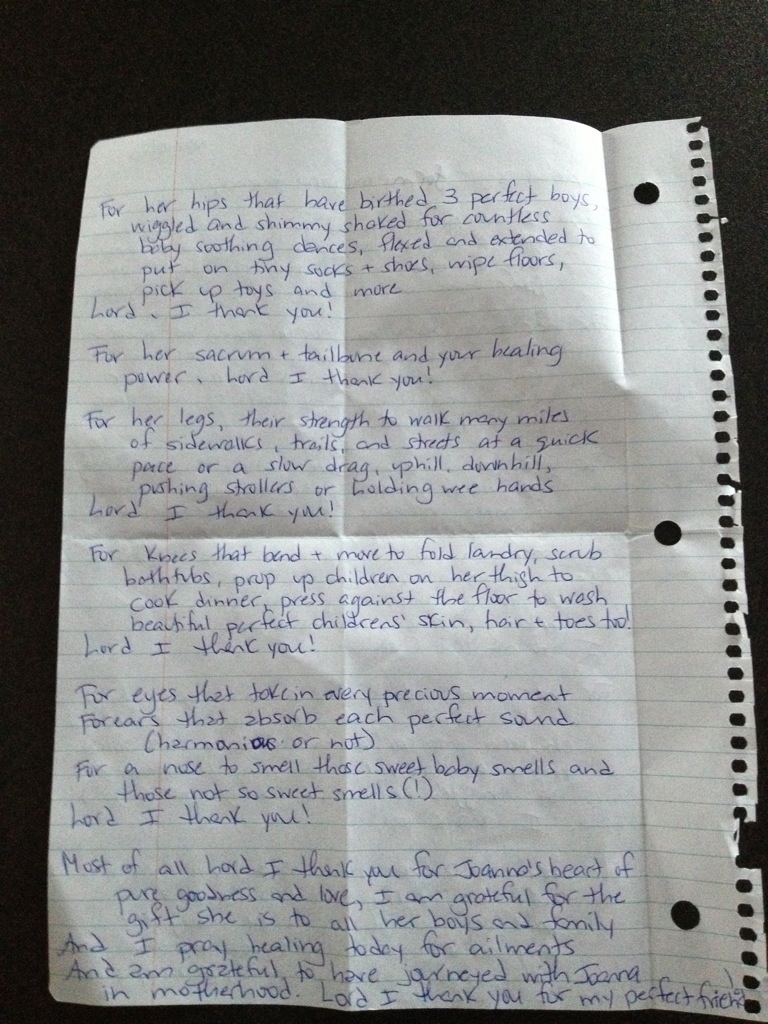 For her hips that have birthed 3 perfect boys,
wiggled and shimmy shaked for countless
baby soothing dances, flexed and extended to
put on tiny socks + shoes, wipe floors,
pick up toys and more
Lord, I thank you!
For her sacrum + tailbone and your healing
power, Lord I thank you!
For her legs, their strength to walk many miles
of sidewalks, trails, and streets at a quick
pace or a slow drag, uphill, downhill,
pushing strollers or holding wee hands
Lord I thank you!
For knees that bend + move to fold landry, scrub
bathtubs, prop up children on her thigh to
cook dinner, press against the floor to wash
beautiful perfect childrens' skin, hair + toes too!
Lord I thank you!
For eyes that take in every precious moment
For ears that absorb each perfect sound
(harmonious or not)
For a nose to smell those sweet baby smells and
those not so sweet smells (!)
Lord I thank you!
Most of all Lord I thank you for Joanna's heart of
pure goodness and love, I am grateful for the
gift she is to all her boys and family
And I pray healing today for ailments
And am grateful to have journeyed with Joanna
in motherhood. Lord I thank you for my perfect friend!